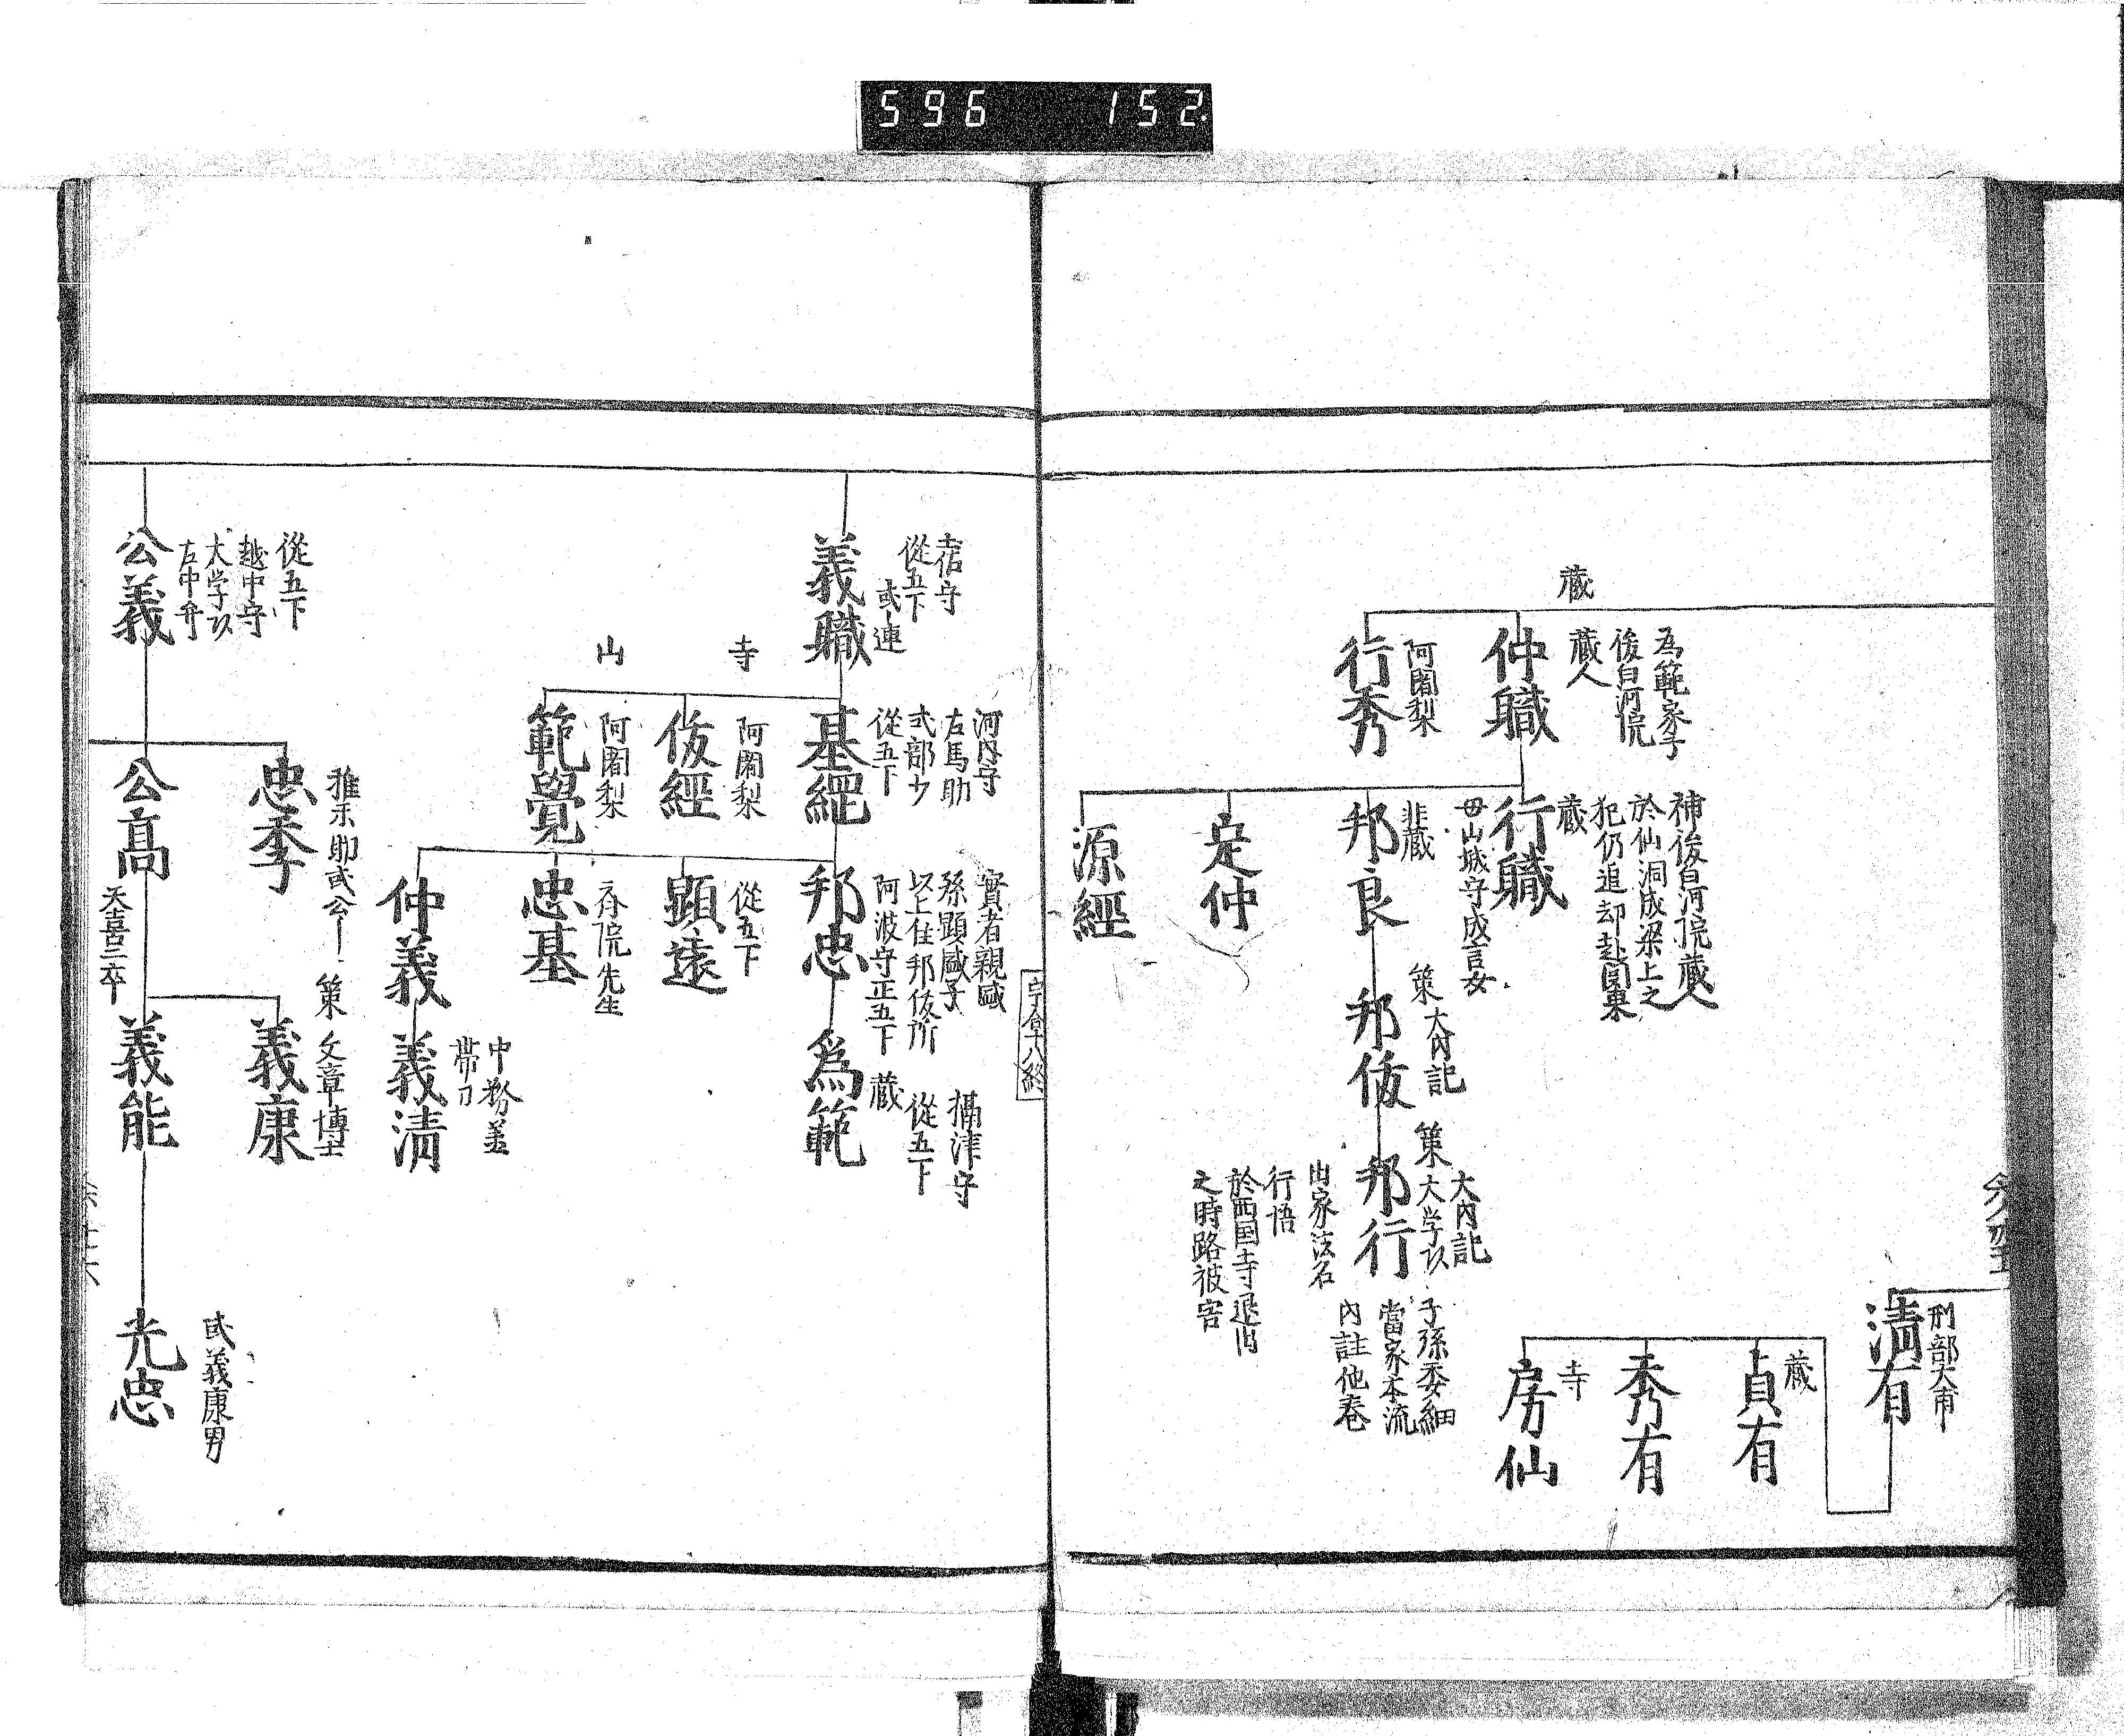 596 152
刑部大甫
清有
藏
貞有
秀有
寺
房仙
藏
為範家子
後白河院
藏人
仲職
阿闍梨
行秀
補後白河院藏人
於仙洞成梁上之
犯仍追却赴関東
藏
行職
母山城守成言女
非藏
邦良
定仲
源經
策
大内記
邦俊
策
大内記
大学以
邦行
出家法名
行悟
於西国寺退出
之時路被害
子孫委細
當家本流
内註他巻
従五下
或連
義職
河内守
左馬助
式部少
従五下
基綱
寺
阿闍梨
俊經
山
阿闍梨
範覺
實者親國
孫顯國子
以上住邦俊所
阿波守正五下
藏
邦忠
攝津守
従五下
為範
従五下
顯遠
斎院先生
忠基
仲義
中務善
帶刀
義清
従五下
越中守
大学以
右中弁
公義
忠季
公高
天喜三卒
策
文章博士
義康
義能
或義康男
光忠